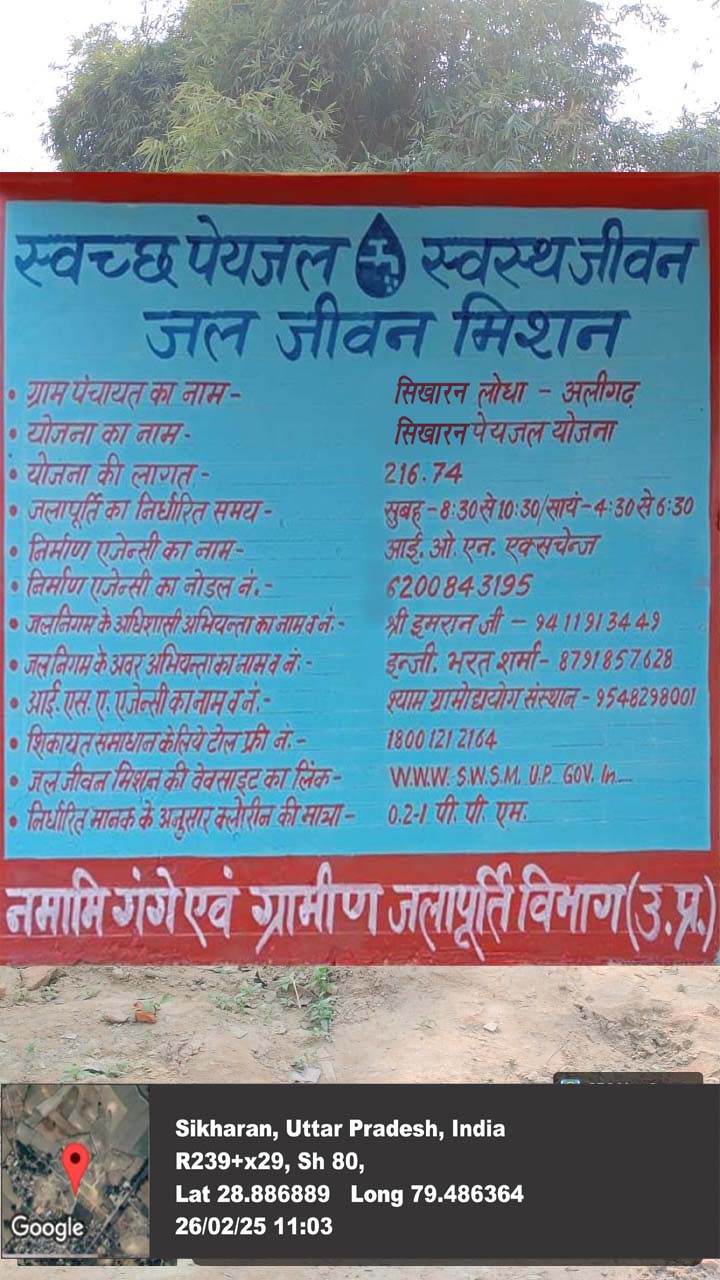 स्वच्छ पेयजल स्वस्थ जीवन
जल जीवन मिशन
• ग्राम पंचायत का नाम - सिखारन लोधा - अलीगढ़
• योजना का नाम - सिखारन पेयजल योजना
• योजना की लागत - 216.74
• जलापूर्ति का निर्धारित समय - सुबह - 8:30 से 10:30/सायं - 4:30 से 6:30
• निर्माण एजेन्सी का नाम - आई. ओ. एन. एक्सचेन्ज
• निर्माण एजेन्सी का नोडल नं. - 6200843195
• जलनिगम के अधिशासी अभियन्ता का नाम व नं. - श्री इमरान जी - 9411913449
• जलनिगम के अवर अभियन्ता का नाम व नं. - इन्जी. भरत शर्मा - 8791857628
• आई. एस. ए. एजेन्सी का नाम व नं. - श्याम ग्रामोद्योग संस्थान - 9548298001
• शिकायत समाधान के लिये टोल फ्री नं. - 1800 121 2164
• जल जीवन मिशन की वेवसाइट का लिंक - W.W.W. S.W.S.M. U.P. GOV. In
• निर्धारित मानक के अनुसार क्लोरीन की मात्रा - 0.2-1 पी. पी. एम.
नमामि गंगे एवं ग्रामीण जलापूर्ति विभाग (उ.प्र.)
Sikharan, Uttar Pradesh, India
R239+x29, Sh 80,
Lat 28.886889 Long 79.486364
26/02/25 11:03
Google